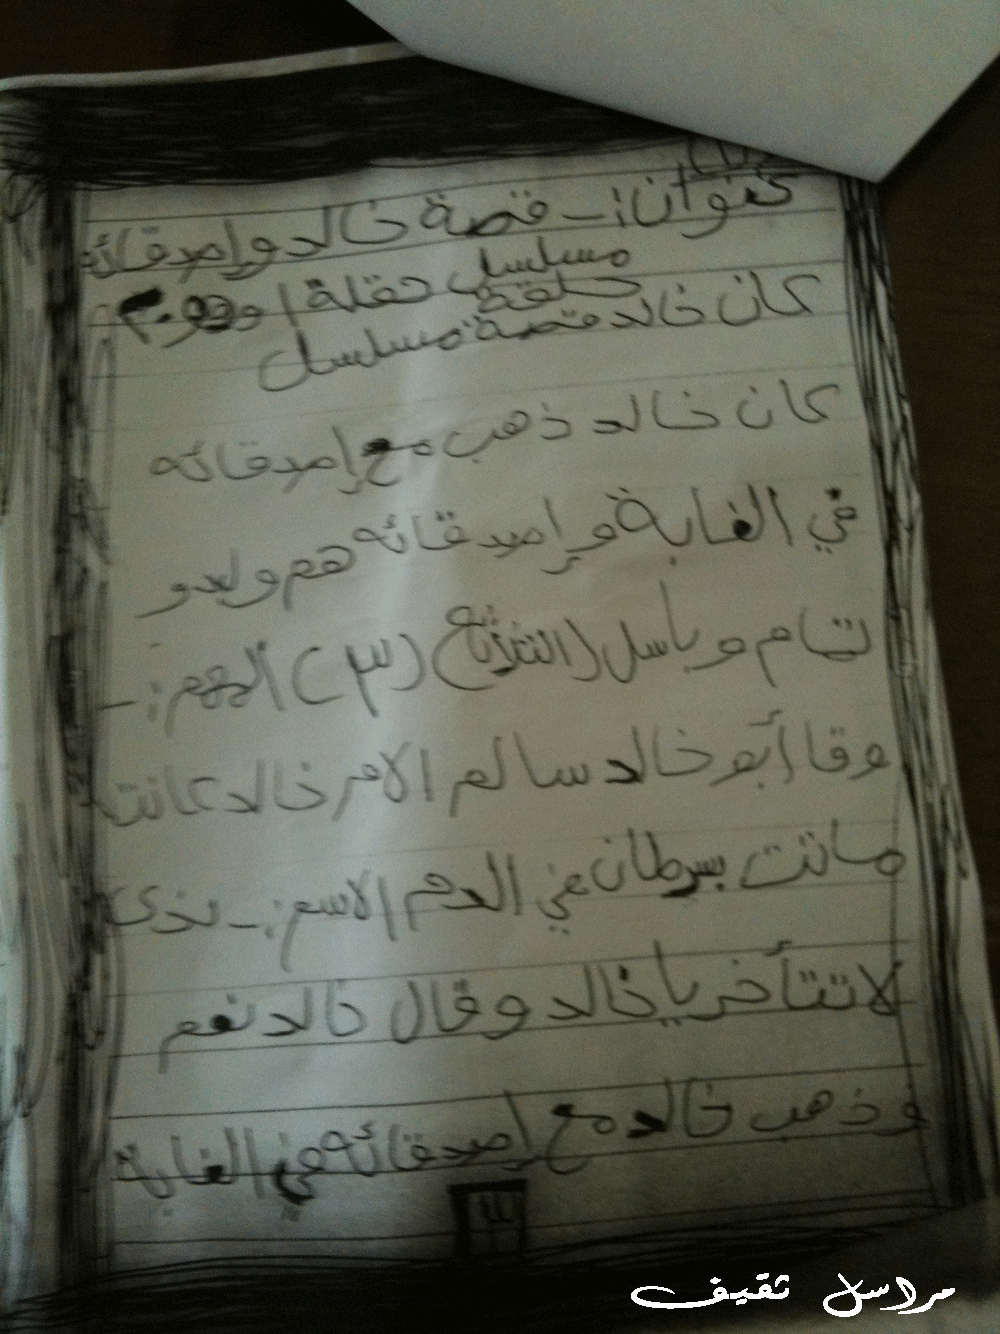 عنوان:- قصة خالد وإصدقائه
مسلسل حقلة ١ و
حلقة
كان خالد قصة مسلسل
كان خالد ذهب مع إصدقائه
في الغابة و إصدقائه هم وليد و
تمام و باسل (الثلاثة) (٣) المهم:-
وقا أبو خالد سالم الامر خالد كانت
ماتت بسرطان في الدم الاسم:-
لا تتأخر يا خالد و قال خالد نعم
و ذهب خالد مع إصدقائه في الغابة
مراسل ثقيف